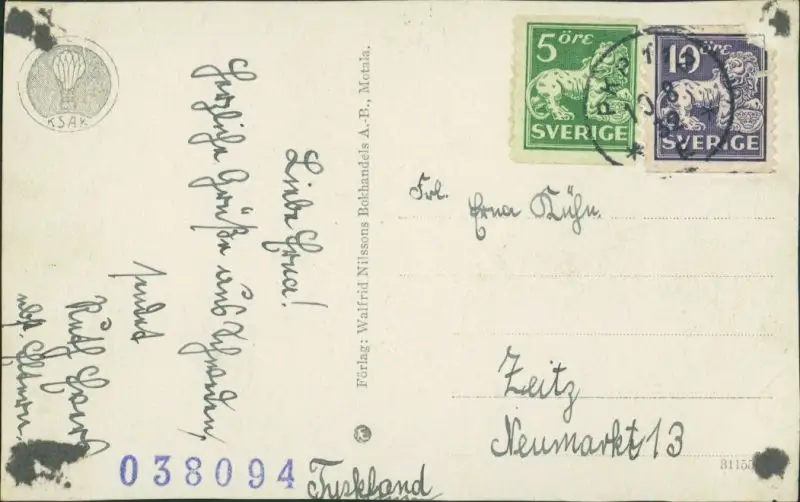 KSAK
Liebe Erna!
Herzliche Grüße aus Schweden,
sendet
Ruth
nbst. Eltern.
Förlag: Walfrid Nilssons Bokhandels A.-B., Motala.
5 öre
SVERIGE
10 öre
SVERIGE
10. 8
Frl. Erna Kühn.
Zeitz
Neumarkt 13
Tyskland
038094
31155